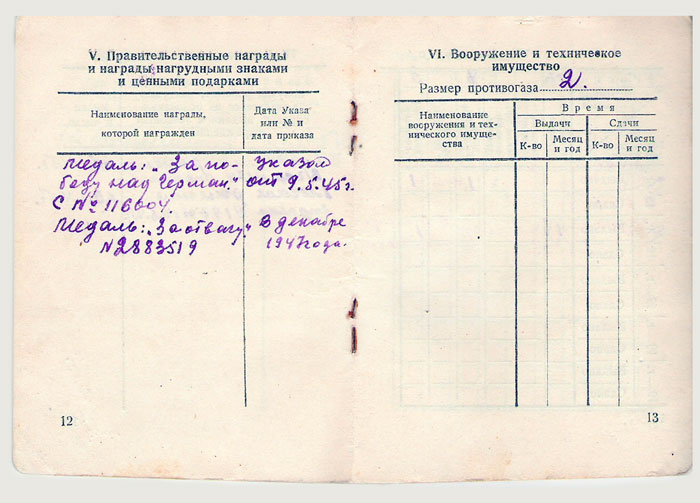 V. Правительственные награды
и награды нагрудными знаками
и ценными подарками
Наименование награды,
которой награжден
Дата Указа
или № и
дата приказа
Медаль: „За по-
беду над Герман."
С № 116004.
Указом
от 9.5.45 г.
Медаль: „За отвагу."
№2883519
В декабре
1947 года.
12
VI. Вооружение и техническое
имущество
Размер противогаза 2.
Наименование
вооружения и тех-
нического имуще-
ства
Время
Выдачи
Сдачи
К-во
Месяц
и год
К-во
Месяц
и год
13